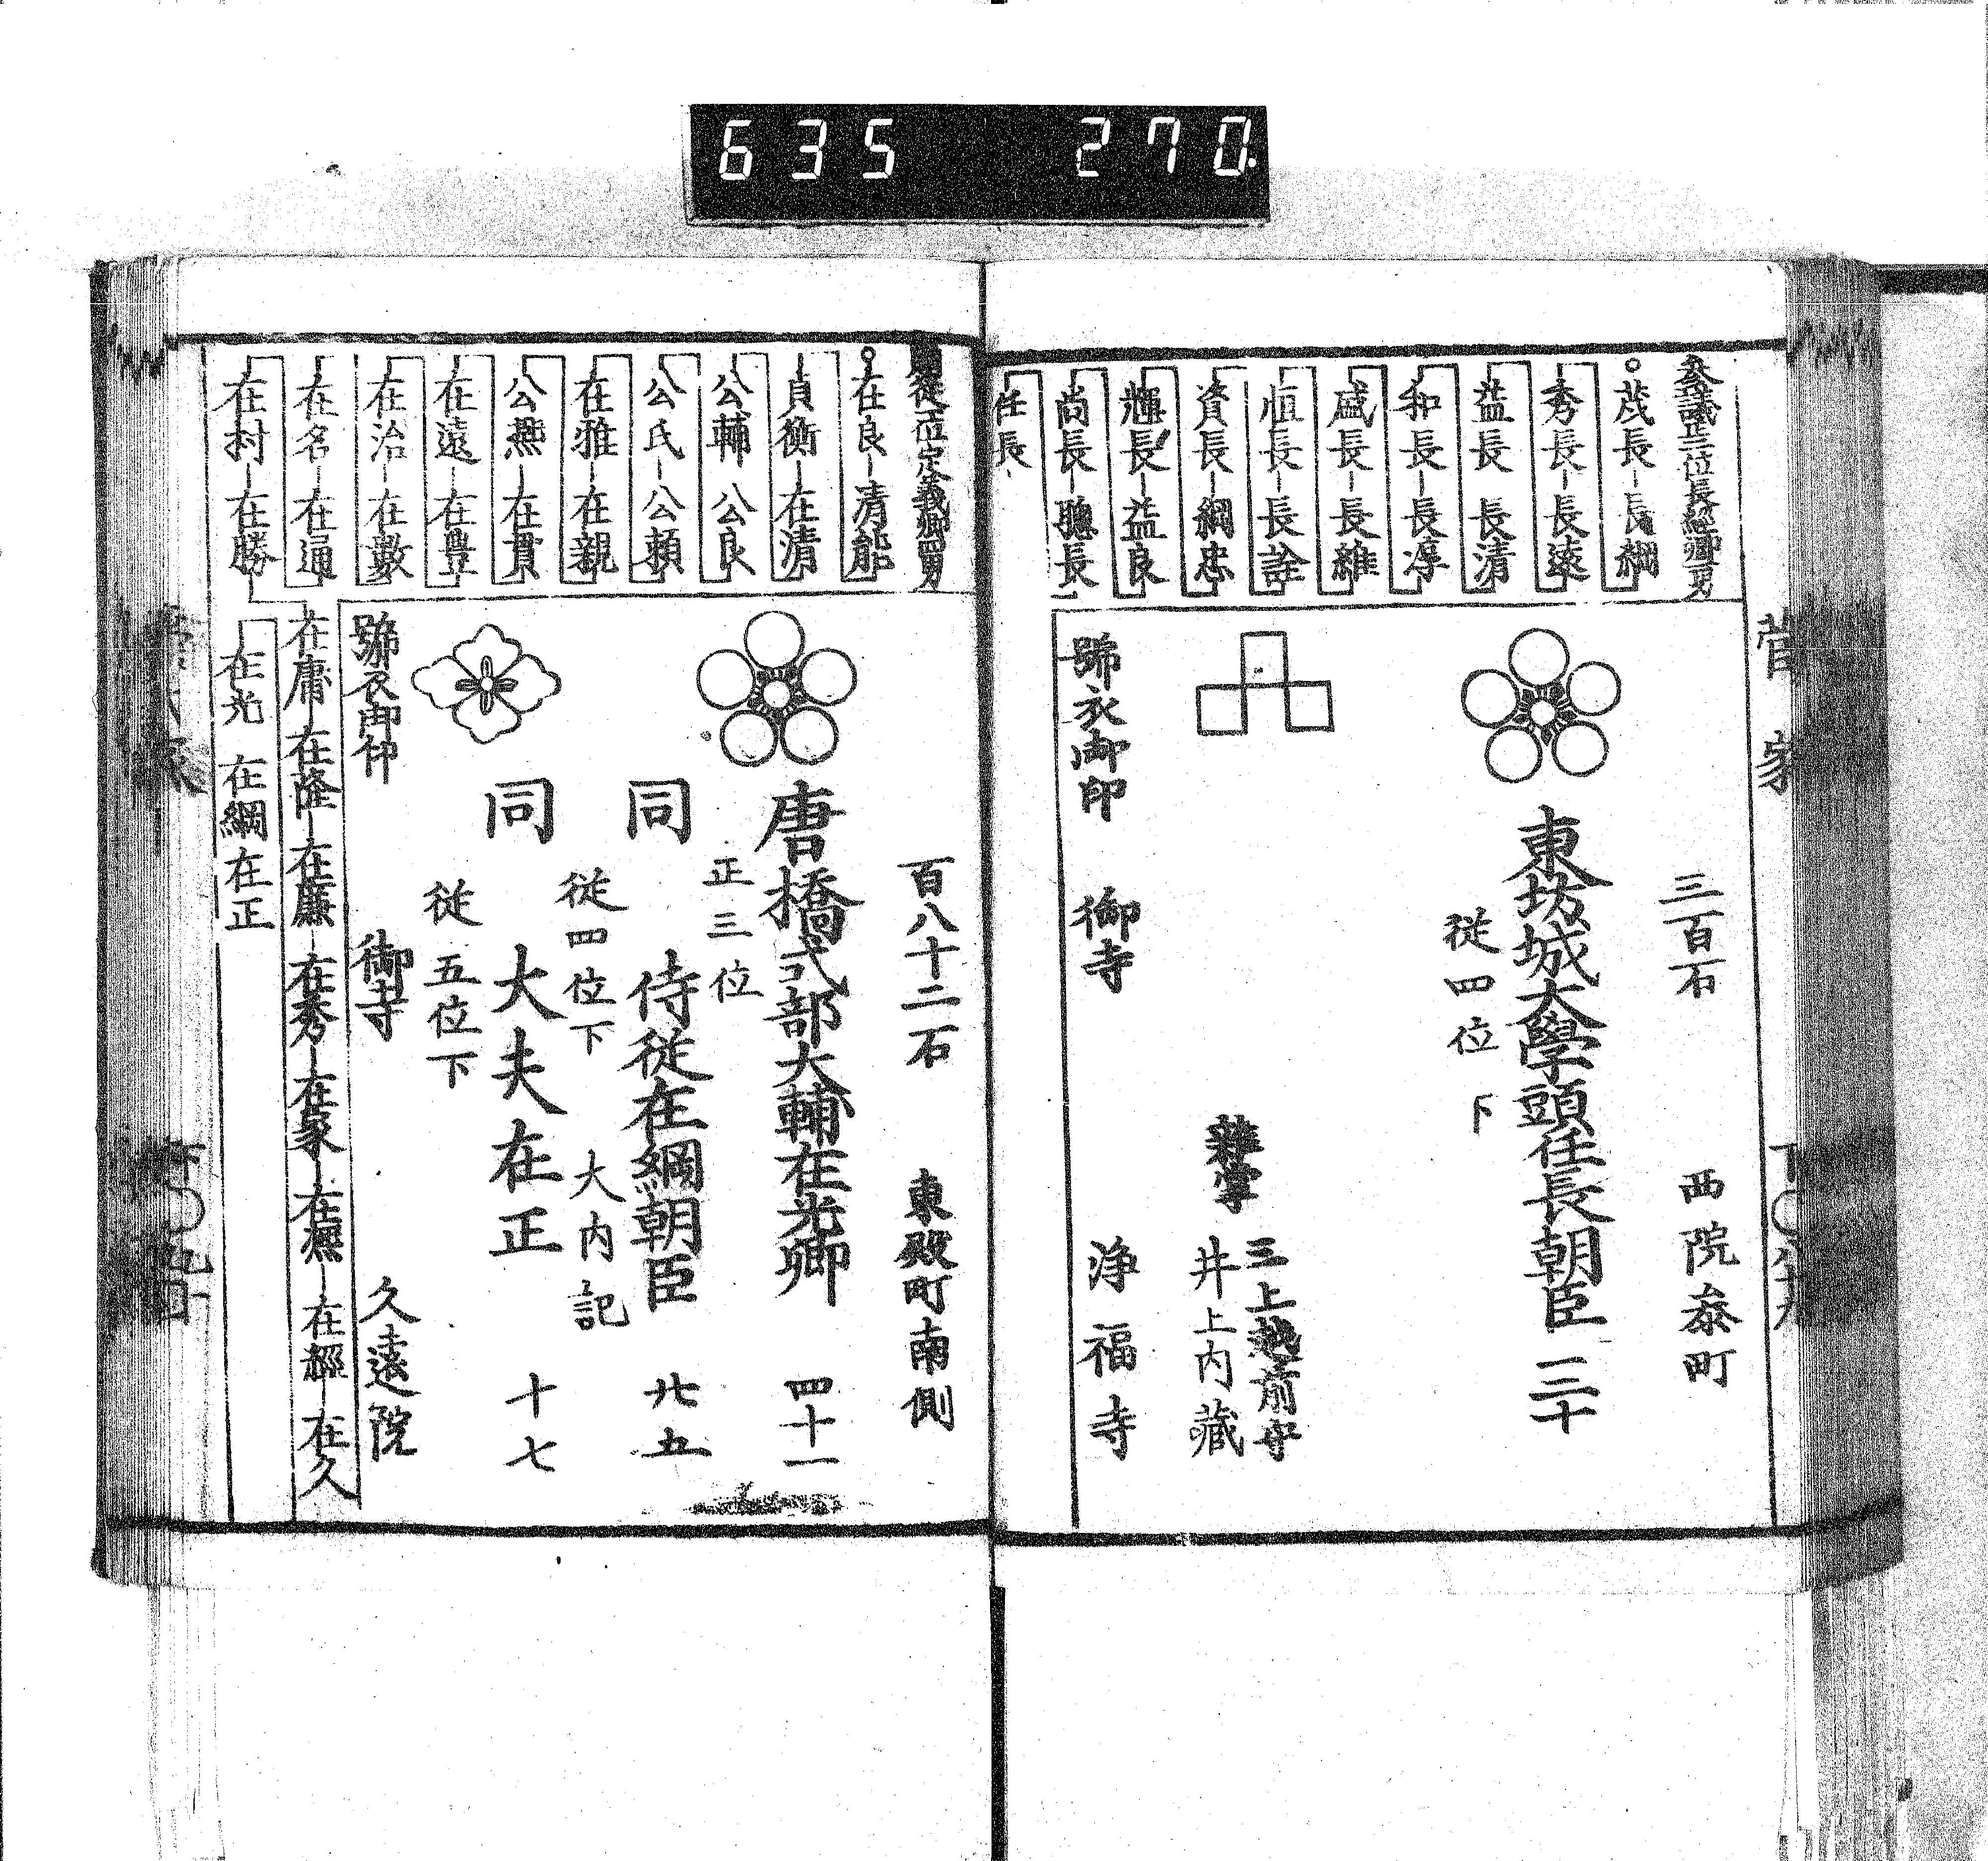 635 270
菅家
参議正三位長経卿二男
茂長 長綱
秀長 長遠
益長 長清
和長 長淳
盛長 長維
恒長 長詮
資長 綱忠
輝長 益良
尚長 聰長
任長
三百石 西院参町
東坊城大學頭任長朝臣 三十
従四位下
雑掌 三上越前守
井上内藏
蹄衣御印 御寺 浄福寺
在良 清能
貞衡 在清
公輔 公良
公氏 公頼
在雅 在親
公熙 在貫
在遠 在豊
在治 在數
在名 在通
在村 在勝
百八十二石 東殿町南側
唐橋式部大輔在光卿 四十一
正三位
同 侍従在綱朝臣 廿五
従四位下 大内記
同 大夫在正 十七
従五位下
蹄衣御印 御寺 久遠院
在庸 在隆 在廉 在秀 在家 在熙 在經 在久
在光 在綱 在正